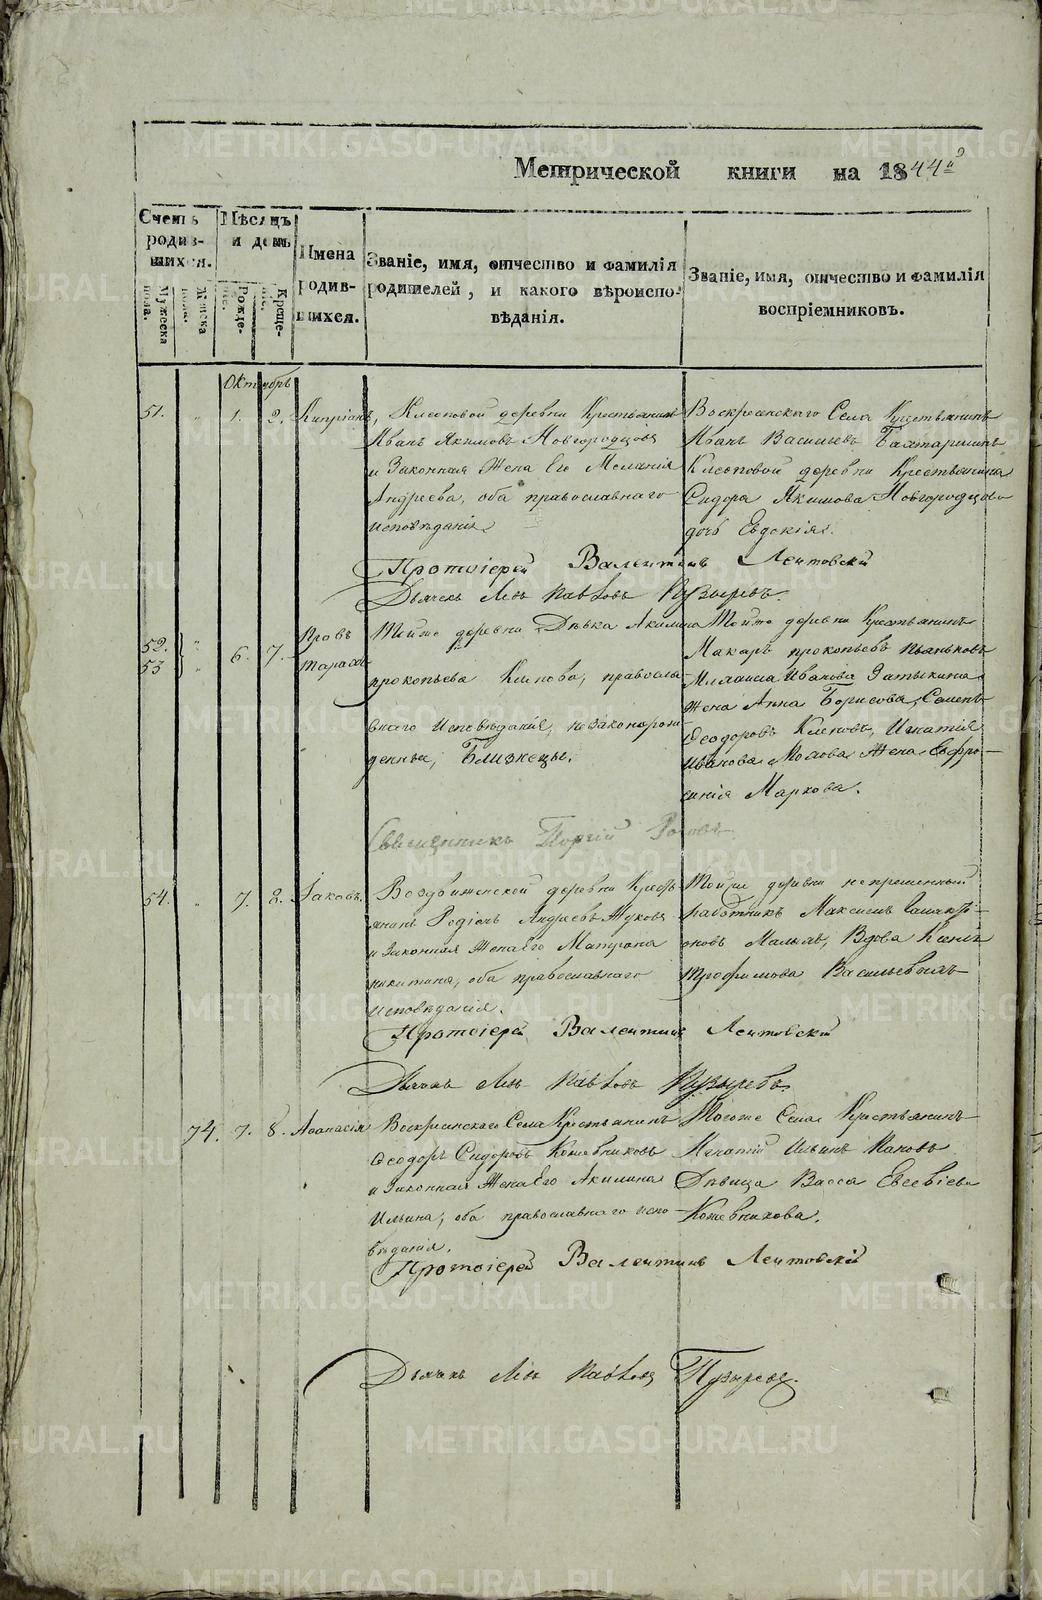 Метрической книги на 1844й
Счетъ родив-шихся.
Мѣсяцъ и день
Имена родив-шихся.
Званіе, имя, отчество и фамилія родителей, и какого вѣроиспо-вѣданія.
Званіе, имя, отчество и фамилія воспріемниковъ.
Мужеска пола.
Женска пола.
Рожде-нія.
Креще-нія.
Октябрь
51. " 1. 2. Кипріанъ,
Клеоповой деревни Крестьянинъ
Иванъ Якимовъ Новгородцовъ
и Законная Жена Его Меланія
Андреева, оба православнаго
исповѣданія.
Воскресенскаго Села Крестьянинъ
Иванъ Васильевъ
Клеоповой деревни Крестьянина
Сидора Якимова Новгородцова
дочь Евдокія.
Протоіерей Валентинъ Лентовскій
Дьячекъ Левъ Павловъ Пузыревъ.
52. "
53 "
6. 7. Провъ
Тарахъ
Тойже деревни Дѣвка Акилина
прокопьева, правосла-
внаго Исповѣданія, незаконорож
денные, Близнецы.
Тойже деревни Крестьянинъ
Макаръ прокопьевъ Пьянковъ
Иванова
Жена Анна Борисова, Семенъ
Ѳеодоровъ, Игнатія
Иванова Жена Евфро-
синія Маркова.
Священникъ
54. " 7. 8. Іаковъ.
Воздвиженской деревни Крестьянинъ Родіонъ Андреевъ Жуковъ
и Законная Жена Его Матрона
никитина, оба православнаго
исповѣданія.
Тойже деревни непремѣнный
работникъ Максимъ
Малыхъ, Вдова Ксенія
Трофимова Васильевыхъ
Протоіерей Валентинъ Лентовскій
Дьячекъ Левъ Павловъ Пузыревъ.
74. 7. 8. Аѳанасія
Воскресенскаго Села Крестьянинъ
Ѳеодоръ Сидоровъ Кожевниковъ
и Законная Жена Его Акилина
Ильина, оба православнаго испо-
вѣданія.
Тогоже Села Крестьянинъ
Игнатій Ильинъ Пановъ
Дѣвица Васса Евсевіева
Кожевникова.
Протоіерей Валентинъ Лентовскій
Дьячекъ Левъ Павловъ Пузыревъ.
METRIKI.GASO-URAL.RU